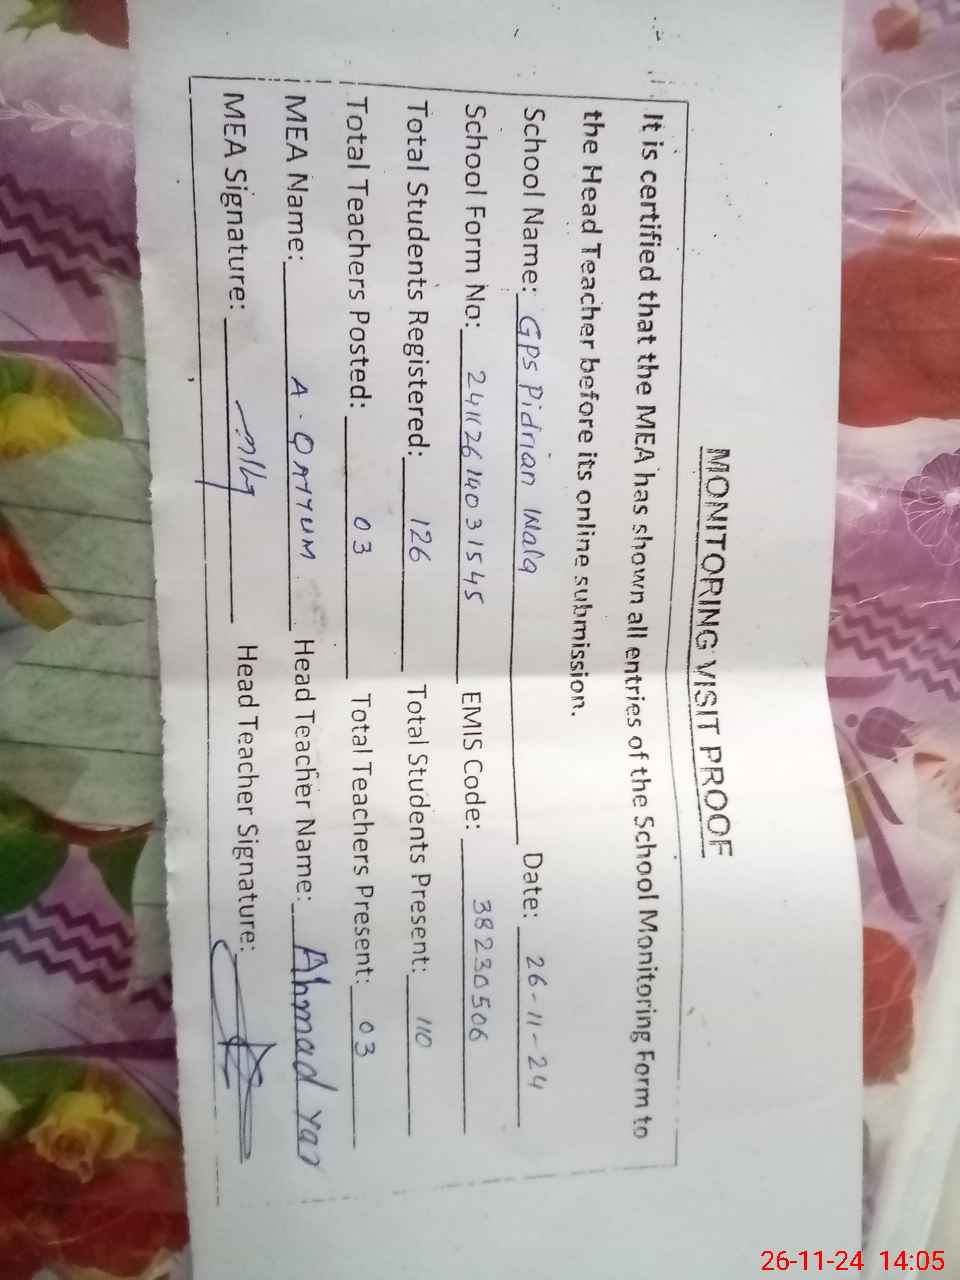 MONITORING VISIT PROOF
It is certified that the MEA has shown all entries of the School Monitoring Form to
the Head Teacher before its online submission.
School Name: GPS Pidrian Wala Date: 26-11-24
School Form No: 24112614031545 EMIS Code: 38230506
Total Students Registered: 126 Total Students Present: 110
Total Teachers Posted: 03 Total Teachers Present: 03
MEA Name: A. QAYYUM Head Teacher Name: Ahmad Yar
MEA Signature: Head Teacher Signature:
26-11-24 14:05